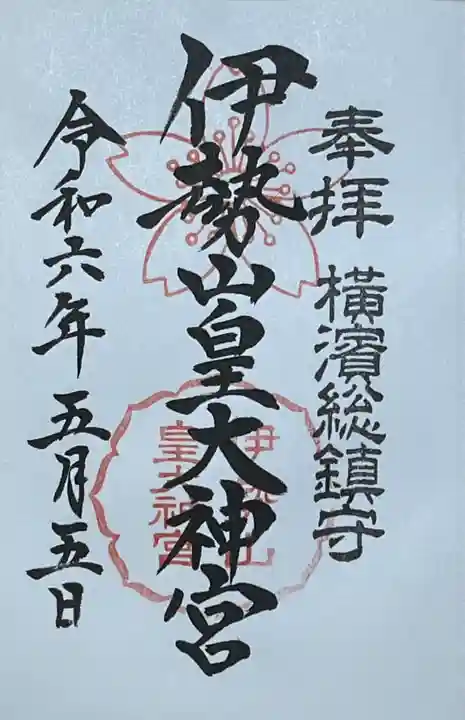 奉拝　横濱総鎮守
伊勢山皇大神宮
伊勢山
皇大神宮
令和六年五月五日